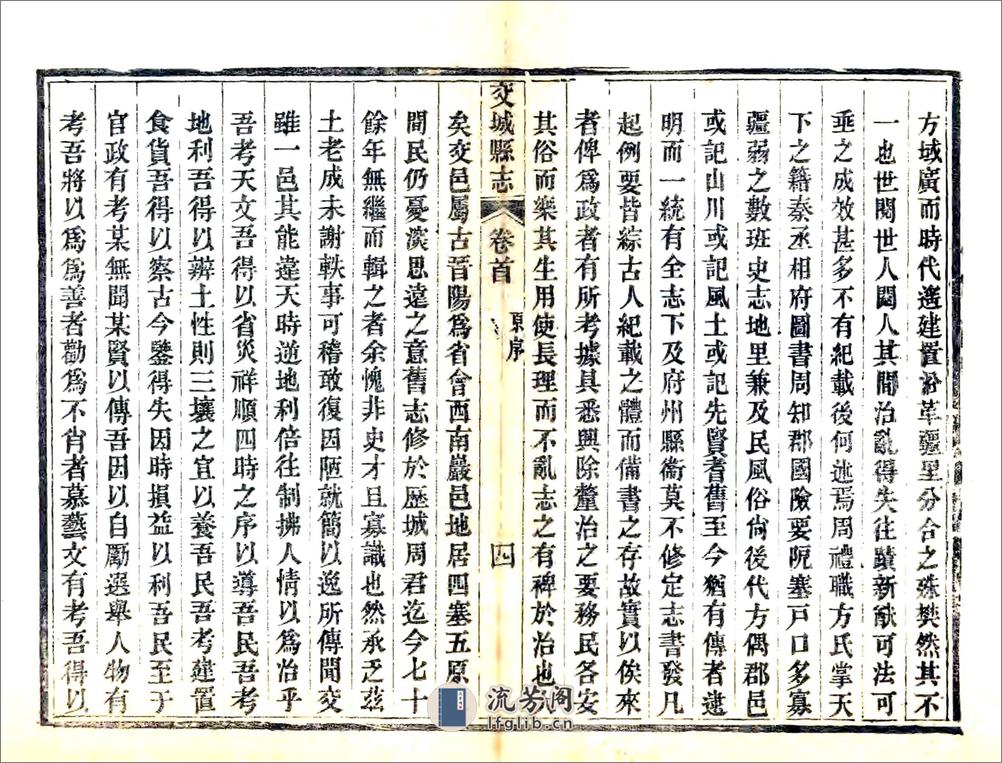 方域廣而時代遙建置沿革疆里分合之殊樊然其不
一也世閱世人閱人其間治亂得失往蹟新猷可法可
垂之成效甚多不有紀載後何述焉周禮職方氏掌天
下之籍秦丞相府圖書周知郡國險要阨塞戸口多寡
疆弱之數班史志地里兼及民風俗尙後代方偶郡邑
或記山川或記風土或記先賢耆舊至今猶有傳者逮
明而一統有全志下及府州縣衞莫不修定志書發凡
起例要皆綜古人紀載之體而備書之存故實以俟來
者俾爲政者有所考據具悉興除釐治之要務民各安
其俗而樂其生用使長理而不亂志之有裨於治也大
交城縣志 卷首 原序 四
矣交邑屬古晉陽爲省會西南巖邑地居四塞五原之
間民仍憂深思遠之意舊志修於歷城周君迄今七十
餘年無繼而輯之者余愧非史才且寡識也然承乏茲
土老成未謝軼事可稽敢復因陋就簡以逸所傳聞交
雖一邑其能違天時逆地利倍往制拂人情以爲治乎
吾考天文吾得以省災祥順四時之序以導吾民吾考
地利吾得以辨土性則三壤之宜以養吾民吾考建置
食貨吾得以察古今鑒得失因時損益以利吾民至于
官政有考某無聞某賢以傳吾因以自勵選舉人物有
考吾將以爲爲善者勸爲不肖者慕藝文有考吾得以
流芳阁
lfglib.cn